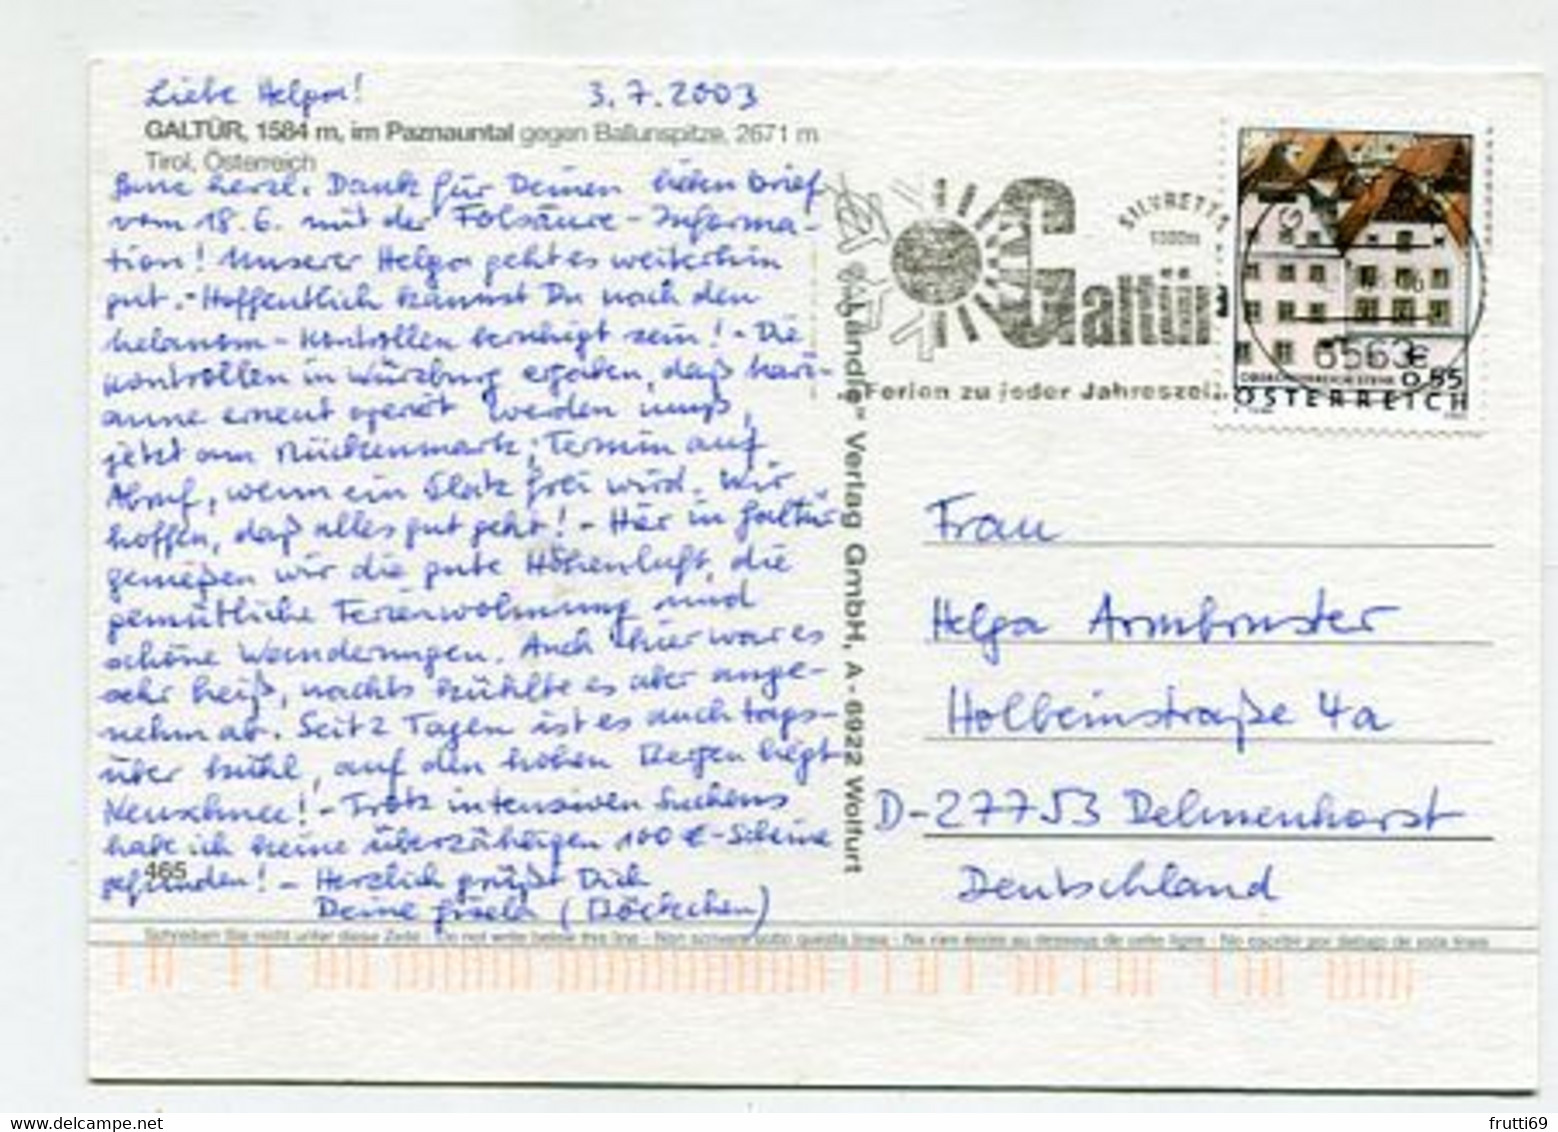 Liebe Helga! 3.7.2003
GALTÜR, 1584 m, im Paznauntal gegen Ballunspitze, 2671 m
Tirol, Österreich
herzl. Dank für Deinen lieben Brief
vom 18.6. mit der Folsäure-Informa-
tion! Unserer Helga geht es weiterhin
gut.- Hoffentlich kannst Du nach den
Melanom-Kontrollen beruhigt sein! - Die
Kontrollen in Würzburg ergaben, daß Mari-
anne erneut operiert werden muß,
jetzt am Rückenmark; Termin auf
Abruf, wenn ein Platz frei wird. Wir
hoffen, daß alles gut geht! - Hier in Galtür
genießen wir die gute Höhenluft, die
gemütliche Ferienwohnung und
schöne Wanderungen. Auch hier war es
sehr heiß, nachts kühlte es aber ange-
nehm ab. Seit 2 Tagen ist es auch tags-
über kühl, auf den hohen Bergen liegt
Neuschnee! - Trotz intensiven Suchens
habe ich keine überzähligen 100 €-Scheine
gefunden! - Herzlich grüßt Dich
Deine Gisela (Böckchen)
465
"Ländle" Verlag GmbH, A-6922 Wolfurt
SILVRETTA
Galtür
Ferien zu jeder Jahreszeit
6563
0.55 €
ÖSTERREICH
Frau
Helga Armbruster
Holbeinstraße 4a
D-27753 Delmenhorst
Deutschland
Schreiben Sie nicht unter diese Zeile · Do not write below this line · Non scrivere sotto questa linea · Ne rien écrire au dessous de cette ligne · No escribir por debajo de esta línea
frutti69